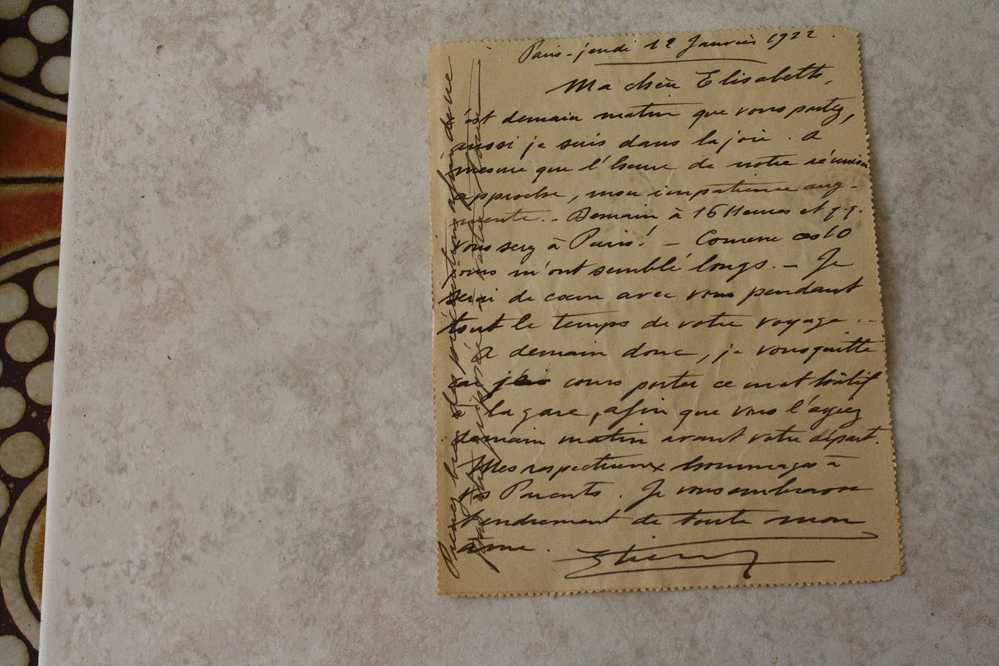 Paris - jeudi 12 Janvier 1922.
Ma chère Elisabeth,
c'est demain matin que vous partez,
aussi je suis dans la joie. A
mesure que l'heure de notre réunion
approche, mon impatience aug-
mente. - Demain à 16 Heures et
vous serez à Paris! - Comme ces 10
jours m'ont semblé longs. - Je
serai de coeur avec vous pendant
tout le temps de votre voyage. -
A demain donc, je vous quitte
car je cours porter ce mot hâtif
à la gare, afin que vous l'ayez
demain matin avant votre départ.
Mes respectueux hommages à
vos Parents. Je vous embrasse
tendrement de toute mon
âme. Etienne
Prenez bien des précautions afin de ne
pas votre